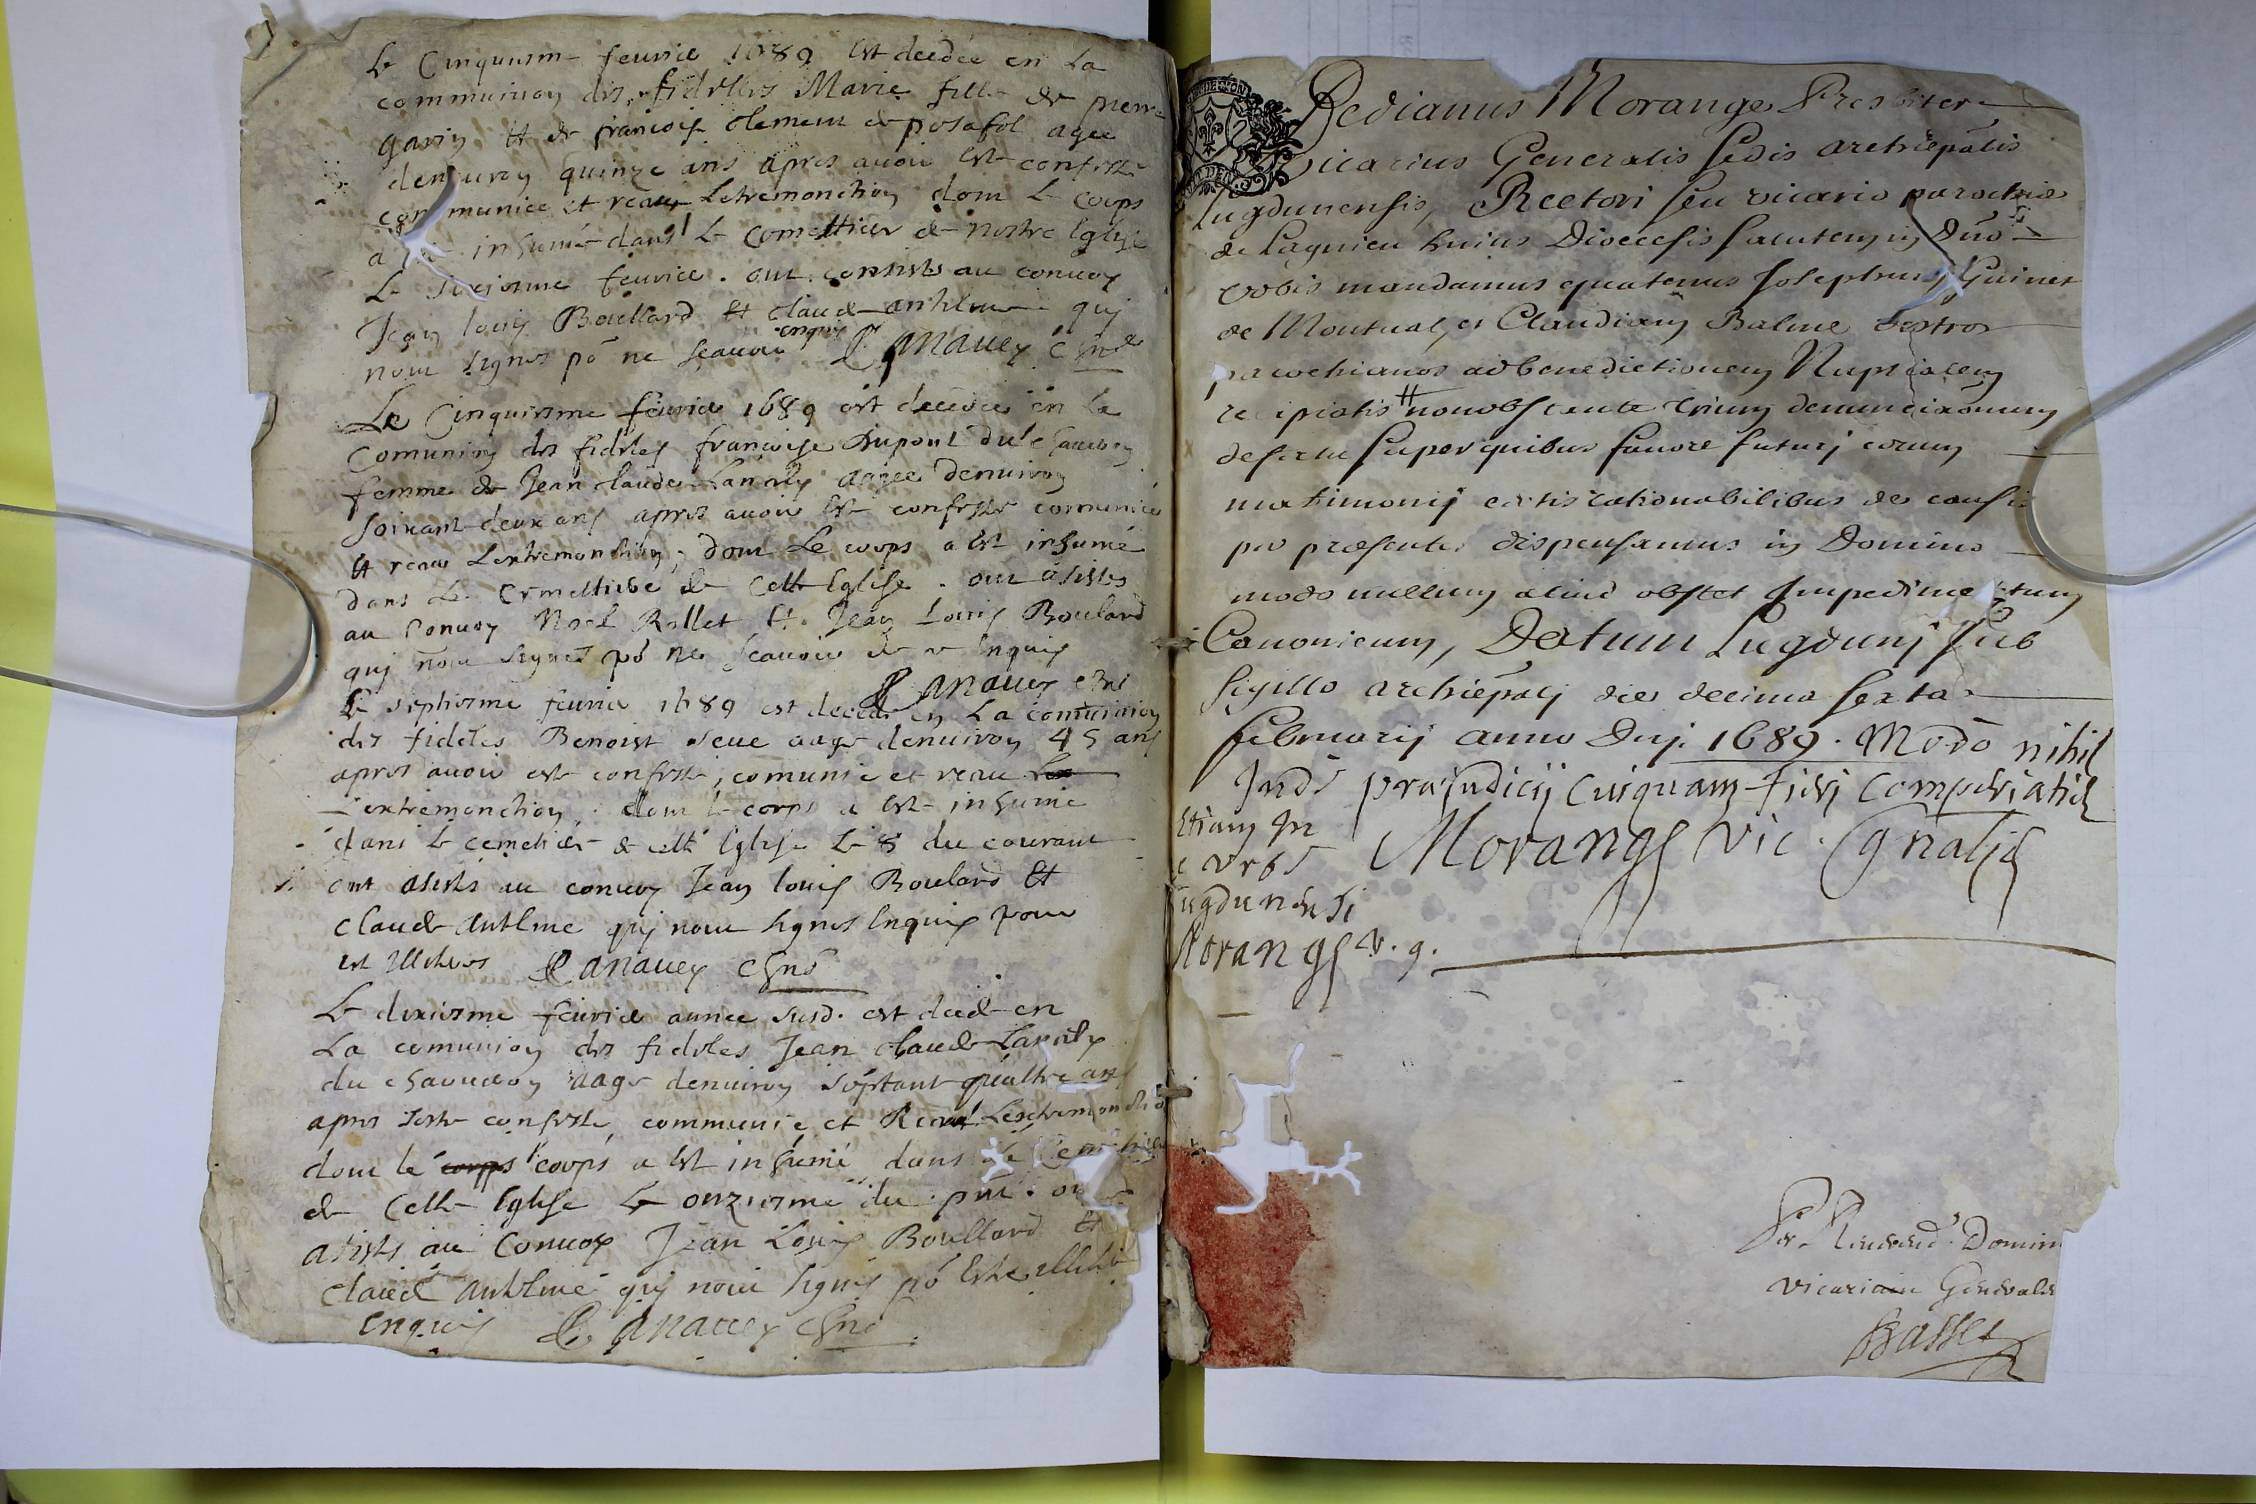 Le Cinquiesme feurier 1689 est decedée en la
communion des fidelles Marie fille de pierre
garin et de francoise Clement de posafol agee
denuiron quinze ans apres auoir esté confessée
communiee et receu lextremonction dont le corps
a este inhumé dans le cemettiere de nostre Eglise
le sixiesme feurier . ont consistés au conuoy
Jean louis Boullard et claude anthlme qui
nont signés po ne scauoir enquis P anauex
Le Cinquiesme feurier 1689 est decedée en la
Comunion des fideles francoise dupont du chaucron
femme de Jean claude aagee denuiron
soixant deux ans apres auoir esté confessée comuniée
et receu lextremonction, dont le corps a esté inhumé
dans le cemettiere de cette Eglise . ont asistés
au Conuoy Noel Rollet et Jean Louis Boulard
qui nont signés po ne scauoir de ce enquis
P anauex
Le septiesme feurier 1689 est decedé en la comunion
des fideles Benoist seue aagé denuiron 45 ans
apres auoir esté confessé, comunié et receu
lextremonction, dont le corps a esté inhumé
dans le cemetiere de cette Eglise le 8 du courant
ont asistés au conuoy Jean louis Boulard et
claude anthlme qui nont signés enquis pour
est illiteres P anauex
Le dixiesme feurier annee susd. est decedé en
La comunion des fideles Jean claude
du chaucron aagé denuiron septant quattre ans
apres estre confessé, communié et Receu Lextremonctio
dont le corps corps a esté inhumé dans le Cemettie
de cette Eglise le onziesme du pnt . on
asistés au Conuoy Jean Louis Boullard et
claude anthlme qui nont signés po estre illite
enquis P anauex
Bedianus Morange Presbiter
Vicarius Generalis sedis archiepalis
lugdunensis, Rectori seu vicario parochiæ
de lagnieu huius Dioecesis salutem in Dno
vobis mandamus quatenus Josephum Guinet
de Montual, et Claudiam Balme vestros
parochianos ad benedictionem Nuptialem
recipiatis # nonobstante trium denunciaonum
defectu super quibus fauore futurj eorum
matrimonij certis rationabilibus de causis
per præsentes dispensamus in Domino
modo nullum aliud obstet Impedimentum
Canonicum, Datum Lugdunj sub
sigillo archiepalj die decima sexta
februarij anno Dnj. 1689. Modò nihil
Inde præjudicij cuiquam fieri comperiatis
Etiam In
urbe
lugdunensi
Morange v. g.
Morange vic. gnalis
Per Reuerend. Domin
vicarium Generale
Basset